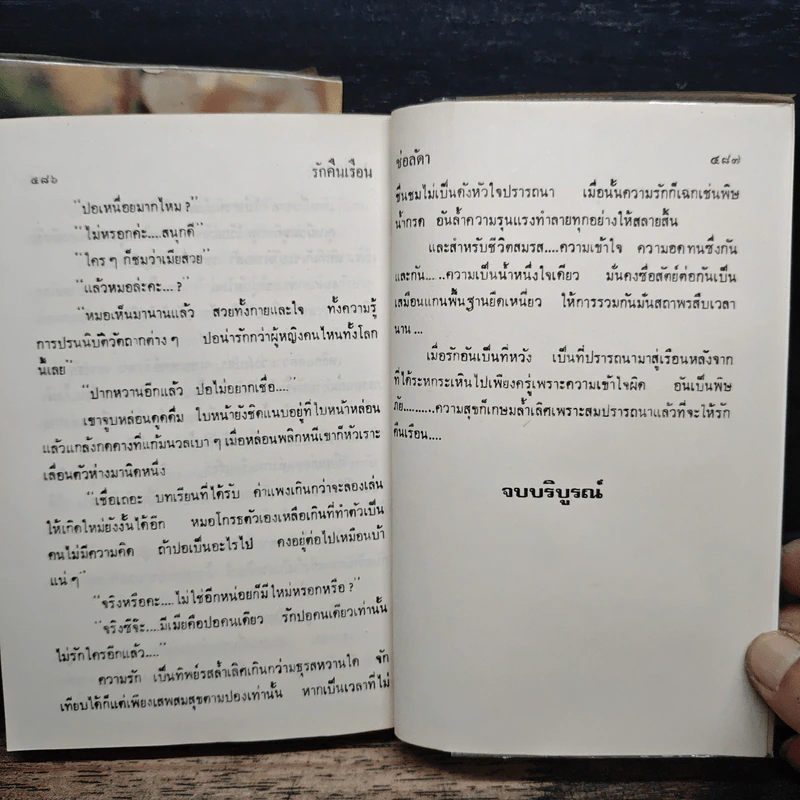 ๔๘๖ รักคืนเรือน
"ปอเหนื่อยมากไหม ?"
"ไม่หรอกค่ะ....สนุกดี"
"ใคร ๆ ก็ชมว่าเมียสวย"
"แล้วหมอล่ะคะ... ?"
"หมอเห็นมานานแล้ว สวยทั้งกายและใจ ทั้งความรู้
การปรนนิบัติวัตถากต่าง ๆ ปอน่ารักกว่าผู้หญิงคนไหนทั้งโลก
นี้เลย"
"ปากหวานอีกแล้ว ปอไม่อยากเชื่อ...."
เขาจูบหล่อนดูดดื่ม ใบหน้ายังชิดแนบอยู่ที่ใบหน้าหล่อน
แล้วแกล้งกดคางที่แก้มนวลเบา ๆ เมื่อหล่อนพลิกหนีเขาก็หัวเราะ
เลื่อนตัวห่างมานิดหนึ่ง
"เชื่อเถอะ บทเรียนที่ได้รับ ค่าแพงเกินกว่าจะลองเล่น
ให้เกิดใหม่ยังงั้นได้อีก หมอโกรธตัวเองเหลือเกินที่ทำตัวเป็น
คนไม่มีความคิด ถ้าปอเป็นอะไรไป คงอยู่ต่อไปเหมือนบ้า
แน่ ๆ"
"จริงหรือคะ....ไม่ใช่อีกหน่อยก็มีใหม่หรอกหรือ ?"
"จริงซีจ๊ะ....มีเมียคือปอคนเดียว รักปอคนเดียวเท่านั้น
ไม่รักใครอีกแล้ว...."
ความรัก เป็นทิพย์รสล้ำเลิศเกินกว่ามธุรสหวานใด จัก
เทียบได้ก็แต่เพียงเสพสมสุขตามปองเท่านั้น หากเป็นเวลาที่ไม่
ช่อลัดา ๔๘๗
ชื่นชมไม่เป็นดังหัวใจปรารถนา เมื่อนั้นความรักก็เฉกเช่นพิษ
น้ำกรด อันล้ำความรุนแรงทำลายทุกอย่างให้สลายสิ้น
และสำหรับชีวิตสมรส....ความเข้าใจ ความอดทนซึ่งกัน
และกัน... ..ความเป็นน้ำหนึ่งใจเดียว มั่นคงซื่อสัตย์ต่อกันเป็น
เสมือนแกนพื้นฐานยึดเหนี่ยว ให้การรวมกันมั่นสถาพรสืบเวลา
นาน ...
เมื่อรักอันเป็นที่หวัง เป็นที่ปรารถนามาสู่เรือนหลังจาก
ที่ได้ระหกระเหินไปเพียงครู่เพราะความเข้าใจผิด อันเป็นพิษ
ภัย.........ความสุขก็เกษมล้ำเลิศเพราะสมปรารถนาแล้วที่จะให้รัก
คืนเรือน....
จบบริบูรณ์